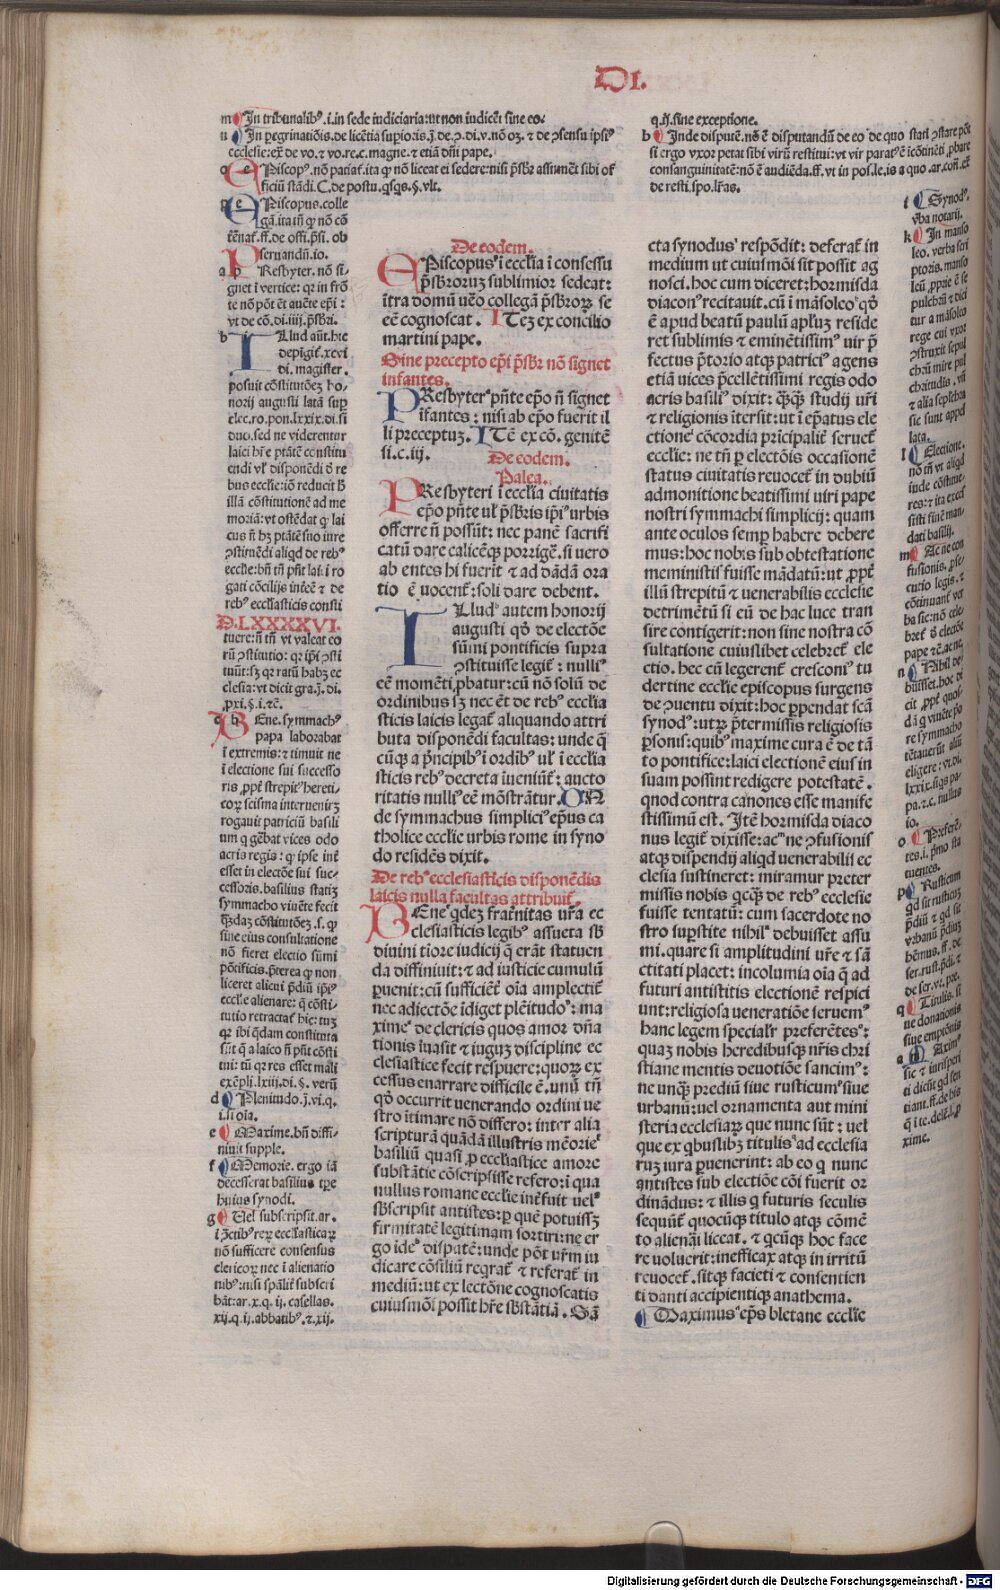 DI.
m In tribunalibꝰ.i.in sede iudiciaria:ut non iudicet sine eo.
n In peregrinatiōis.de licētia superioris.
ecclesie:ex de vo.⁊ vo.re.c.magne.⁊ etiā dn̄i pape.
o Episcopꝰ.nō patiat.ita ꝙ nō liceat ei sedere:nisi p̄sbr̄ assumēt sibi of
ficiū stādi.C.de postu.
p Episcopus.colle
gā.ita tn̄ ꝙ nō cō
tēnat.ff.de offi.p̄si. ob
seruandū.io.
a Presbyter. nō si-
gnet ī vertice: qr in frō
te nō pōt
vt de cō.di.iiii.p̄sbri.
b Illud aūt.hic
di. magister.
posuit cōstitutōeꝫ ho-
norij augusti latā sup
elec.ro.pon.lxxix.di.si
duo.sed ne viderentur
laici hr̄e ptātē cōstitu
endi vl' disponēdi d̄ re
bus ecclie:iō reducit
illā cōstitutionē ad me
moriā:vt ostēdat ꝙ lai
cus n̄ hꝫ ptātē suo iure
ꝯstituēdi aliqd de rebꝰ
ecclie:
gati cōcilijs
rebꝰ eccl'iasticis consti
D.LXXXXVI.
tuere:n̄ tn̄ vt valeat eo
rū ꝯstitutio: qr ip̄i ꝯsti
tuūt:sꝫ qr ratū habꝫ ec
clesia:vt dicit gra.
c Bene.symmachꝰ
papa laborabat
ī extremis:⁊ timuit ne
ī electione sui successo
ris ,ppt̄ strepitꝰ hereti-
coꝝ scisma interueniꝫ
rogauit patriciū basili
um q gēbat vices odo
acris regis: ꝙ ipse int̄
esset in electōe sui suc-
cessoris.basilius statiꝫ
symmacho viuēte fecit
qsdaꝫ cōstitutōeꝫ.s. ꝙ
sine eius consultatione
nō fieret electio sūmi
pōtificis.p̄terea ꝙ non
liceret alicui p̄diū ip̄iꝰ
eccl'e alienare: q cōsti-
tutio retractat̄ hic: tuꝫ
qr ibi qdam constituta
sūt q a laico n̄ pn̄t cōsti
tui: tū qr res esset mali
exēpli.lxiii.di.§. verū
d Plenitudo.
i.
e Maxime.bn̄ diffi-
niuit supple.
f Memorie. ergo iā
decesserat basilius tp̄e
huius synodi.
g Vel subscripsit.ar.
nō sufficere consensus
clericoꝝ nec ī alienatio
nibꝰ:nisi spālit̄ subscri
bāt:ar.x.q.ij.casellas.
xij.q.ij.abbatibꝰ.⁊.xij.
De eodem.
EPiscopusꝰ ī ecclīa ī consessu
p̄sbroruꝫ sublimior sedeat:
ītra domū uēo collegā p̄sbroꝝ se
eē cognoscat. ITeꝫ ex concilio
martini pape.
Sine precepto ep̄i p̄sbr̄ nō signet
infantes.
PResbyterꝰ p̄nte ep̄o n̄ signet
īfantes: nisi ab ep̄o fuerit il
li preceptuꝫ. ITē ex cō. genitē
si.c.iij.
De eodem.
Palea.
PResbyteri ī ecclīa ciuitatis
ep̄o pn̄te ul' p̄sbris ip̄iꝰ urbis
offerre n̄ possūt: nec panē sacrifi
catū dare calicēqꝫ porrigē.si uero
ab entes hi fuerīt ⁊ ad dādā ora
tio ē uocent̄: soli dare debent.
ILludꝰ autem honorij
augusti qd' de electōe
sūmi pontificis supra
ꝯstituisse legit̄: nulliꝰ
eē momēti,pbatur:cū nō solū de
ordinibus sꝫ nec ēt de rebꝰ ecclīa
sticis laicis legat̄ aliquando attri
buta disponēdi facultas: unde q̄
cūqꝫ a p̄ncipibꝰ ī ordibꝰ ul' ī ecclīa
sticis rebꝰ decreta īueniūt̄: aucto
ritatis nulliꝰ eē mōstrātur. UN
de symmachus simplici ep̄us ca
tholice ecclie urbis rome in syno
do residēs dixit.
De rebꝰ ecclesiasticis disponēdis
laicis nulla facultas attribuit̄.
BEneꝰ qdeꝫ frat̄nitas ur̄a ec
clesiasticis legibꝰ assueta sb̄
diuini tiore iudicij q erāt statuen
da diffiniuit:⁊ ad iusticie cumulū
puenit:cū sufficiēt̄ oīa amplectit̄
nec adiectōe īdiget plēitudoꝰ: ma
ximeꝰ de clericis quos amor dn̄a
tionis īuasit ⁊ iuguꝫ discipline ec
clesiastice fecit respuere:quoꝝ ex
cessus enarrare difficile ē. unū tn̄
qd' occurrit uenerando ordini ue
stro ītimare nō differo: inter alia
scripturā quādā illustris mēorieꝰ
basiliū quasi ,p eccl'iastice amore
substātie cōscripsisse refero:ī qua
nullus romane ecclie īt̄fuit uel'
sb̄scripsit antistes:p quē potuissꝫ
firmitatē legitimam sortiri:ne er
go īdeꝰ dispatē:unde pōt ur̄m iu
dicare cōsiliū reqrat̄ ⁊ referat̄ in
mediū:ut ex lectōne cognoscatis
cuiusmōi possit hr̄e sb̄stātiā. Sā
q.ij.sine exceptione.
b Inde disputē. nō ē disputandū de eo de quo stati ꝯstare pōt
si ergo vxor petat sibi virū restitui: vt vir paratꝰ ē īcōtinēti ,pbare
consanguinitatē: nō ē audiēda.ff. vt in pos.le.is a quo .ar.con.
de resti.spo.lr̄as.
cta synodusꝰ respōdit: deferat̄ in
medium ut cuiusmōi sit possit ag
nosci. hoc cum diceret:hormisda
diaconꝰ recitauit.cū ī māsoleoꝰ qd'
ē apud beatū paulū apl'uꝫ reside
ret sublimis ⁊ eminētissimꝰ uir p̄
fectus p̄torio atqꝫ patriciꝰ agens
etiā uices p̄cellētissimi regis odo
acris basiliꝰ dixit: qꝫqꝫ studij ur̄i
⁊ religionis ītersit:ut ī ep̄atus ele
ctione cōcordia p̄ricipalit̄ seruet̄
ecclie: ne tn̄ p electōis occasionē
status ciuitatis reuocet̄ in dubiū
admonitione beatissimi uiri pape
nostri symmachi simplicij: quam
ante oculos semp habere debere
mus:hoc nobis sub obtestatione
meministis fuisse mādatū:ut ,ppt̄
illū strepitū ⁊ uenerabilis ecclesie
detrimētū si eū de hac luce tran
sire contigerit:non sine nostra cō
sultatione cuiuslibet celebret̄ ele
ctio. hec cū legerent̄ cresconꝰ tu
dertine ecclie episcopus surgens
de ꝯuentu dixit: hoc ppendat scā
synodꝰ:utꝝ p̄termissis religiosis
psonis:quibꝰ maxime cura ē de tā
to pontifice:laici electionē eius in
suam possint redigere potestatē.
qnod contra canones esse manife
stissimū est. Itē hormisda diaco
nus legit̄ dixisse:ac ne ꝯfusionis
atqꝫ dispendij aliqd uenerabilis ec
clesia sustineret: miramur preter
missis nobis qcqꝫ de rebꝰ ecclesie
fuisse tentatū: cum sacerdote no
stro supstite nihilꝰ debuisset assu
mi. quare si amplitudini ur̄e ⁊ sā
ctitati placet: incolumia oīa q ad
futuri antistitis electionē respici
unt:religiosa ueneratiōe seruemꝰ
hanc legem specialr̄ preferētesꝰ:
quaꝫ nobis heredibusqꝫ nr̄is chri
stiane mentis deuotiōe sancimꝰ:
ne unqꝫ prediū siue rusticumꝰ siue
urbanū:uel ornamenta aut mini
steria ecclesiaꝝ que nunc sūt : uel
que ex qbuslibꝫ titulisꝰ ad ecclesia
ruꝫ iura puenerint: ab eo q nunc
antistes sub electiōe cōi fuerit or
dināduś: ⁊ illis q futuris seculis
sequūt̄ quocūqꝫ titulo atqꝫ cōmē
to alienāi liceat. ⁊ qcūqꝫ hoc face
re uoluerit:inefficax atqꝫ in irritū
reuocet̄.sitqꝫ facieti ⁊ consentien
ti danti accipientiqꝫ anathema.
Maximusꝰ ep̄s bletane ecclie
i Synodꝰ.
v̄ba notarij.
k In manso
leo. verba scri
ptoris. manso
pulchrū ⁊ dici
tur a māsolo
rege cui vxor
ꝯstruxit sepul
chrū mire pul
chritudis. vn̄
⁊ alia sepulchra
sic sunt appel
lata.
l Electione.
nō tn̄ vt aliqd
inde cōstitue-
res: ita excel
sisti finē man-
dati basilij.
m Ac ne con
fusionis. ,pse-
cutio legis.⁊
cōtinuant̄ ver
ba sic:nō cele-
bret̄ electio
pape ⁊c.ac ne.
n Nihil de-
buisset. hoc di
cit ,ppt̄ quos-
dā q viuēte pa
re symmacho
tētauerūt aliū
eligere: vt.di.
lxxix.si qs pa-
pa.⁊.c. nullus
io.
o Preferē-
tes.i. p̄mo sta
tuentes.
p Rusticum
qd sit rusticuꝫ
p̄diū ⁊ qd sit
vrbanū p̄diuꝫ
hēmus.ff. de
ser.rust.p̄di.⁊
de ser.vr.pre.
q Titulis. si
ue donationis
siue emptōnis
a Maximꝰ
sic ⁊ iurisperi
ti dicūt qd sen
tiant.ff.de his
xime.
Digitalisierung gefördert durch die Deutsche Forschungsgemeinschaft - DFG